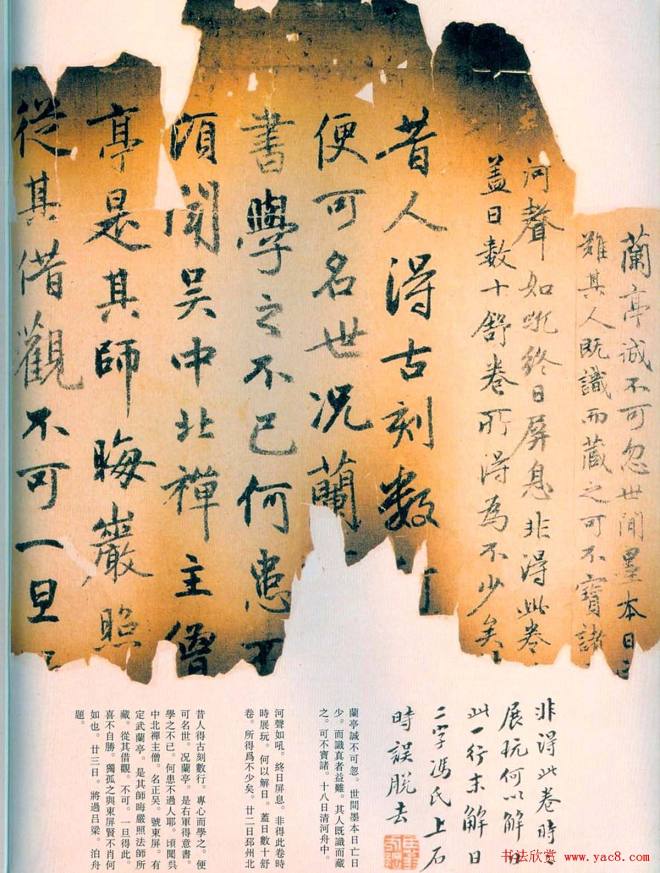 蘭亭誠不可忽世間墨本日
難其人既識而藏之可不寶諸
河聲如吼終日屏息非得此卷
盖日數十舒卷所得為不少矣
昔人得古刻数
便可名世况蘭
書學之不已何患不
頃聞吴中北禪主僧
亭是其師晦巖照
從其借觀不可一旦
非得此卷時々
展玩何以解日
此一行末解日
二字馮氏上石
時誤脫去
蘭亭誠不可忽。世間墨本日亡日
少。而識真者益難。其人既識而藏
之。可不寶諸。十八日清河舟中。
河聲如吼。終日屏息。非得此卷時
時展玩。何以解日。蓋日數十舒
卷。所得爲不少矣。廿二日邳州北
昔人得古刻數行。專心而學之。便
可名世。況蘭亭。是右軍得意書。
學之不已。何患不過人耶。頃聞吳
中北禪主僧。名正吳。號東屏。有
定武蘭亭。是其師晦巖照法師所
藏。從其借觀。不可。一旦得此。
喜不自勝。獨孤之與東屏賢不肖何
如也。廿三日。將過呂梁。泊舟
題。
书法欣赏 www.yac8.com